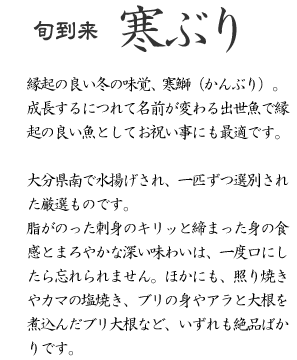 旬到来 寒ぶり
縁起の良い冬の味覚、寒鰤（かんぶり）。
成長するにつれて名前が変わる出世魚で縁
起の良い魚としてお祝い事にも最適です。
大分県南で水揚げされ、一匹ずつ選別され
た厳選ものです。
脂がのった刺身のキリッと締まった身の食
感とまろやかな深い味わいは、一度口にし
たら忘れられません。ほかにも、照り焼き
やカマの塩焼き、ブリの身やアラと大根を
煮込んだブリ大根など、いずれも絶品ばか
りです。